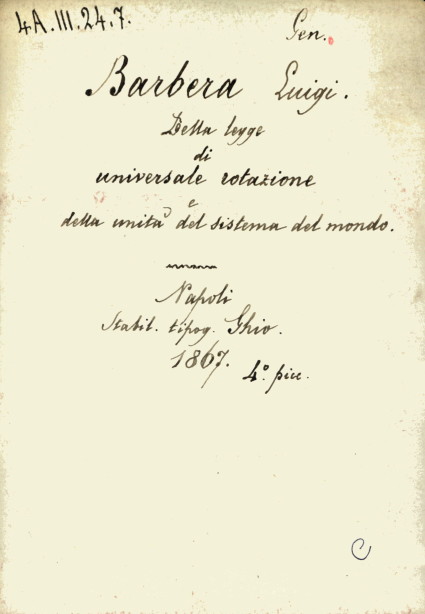 4A.III.24.7.
Gen.
Barbera Luigi.
Della legge
di
universale rotazione
e
della unità del sistema del mondo.
Napoli
Stabil. tipog. Ghio.
1867.
4.° picc.
C